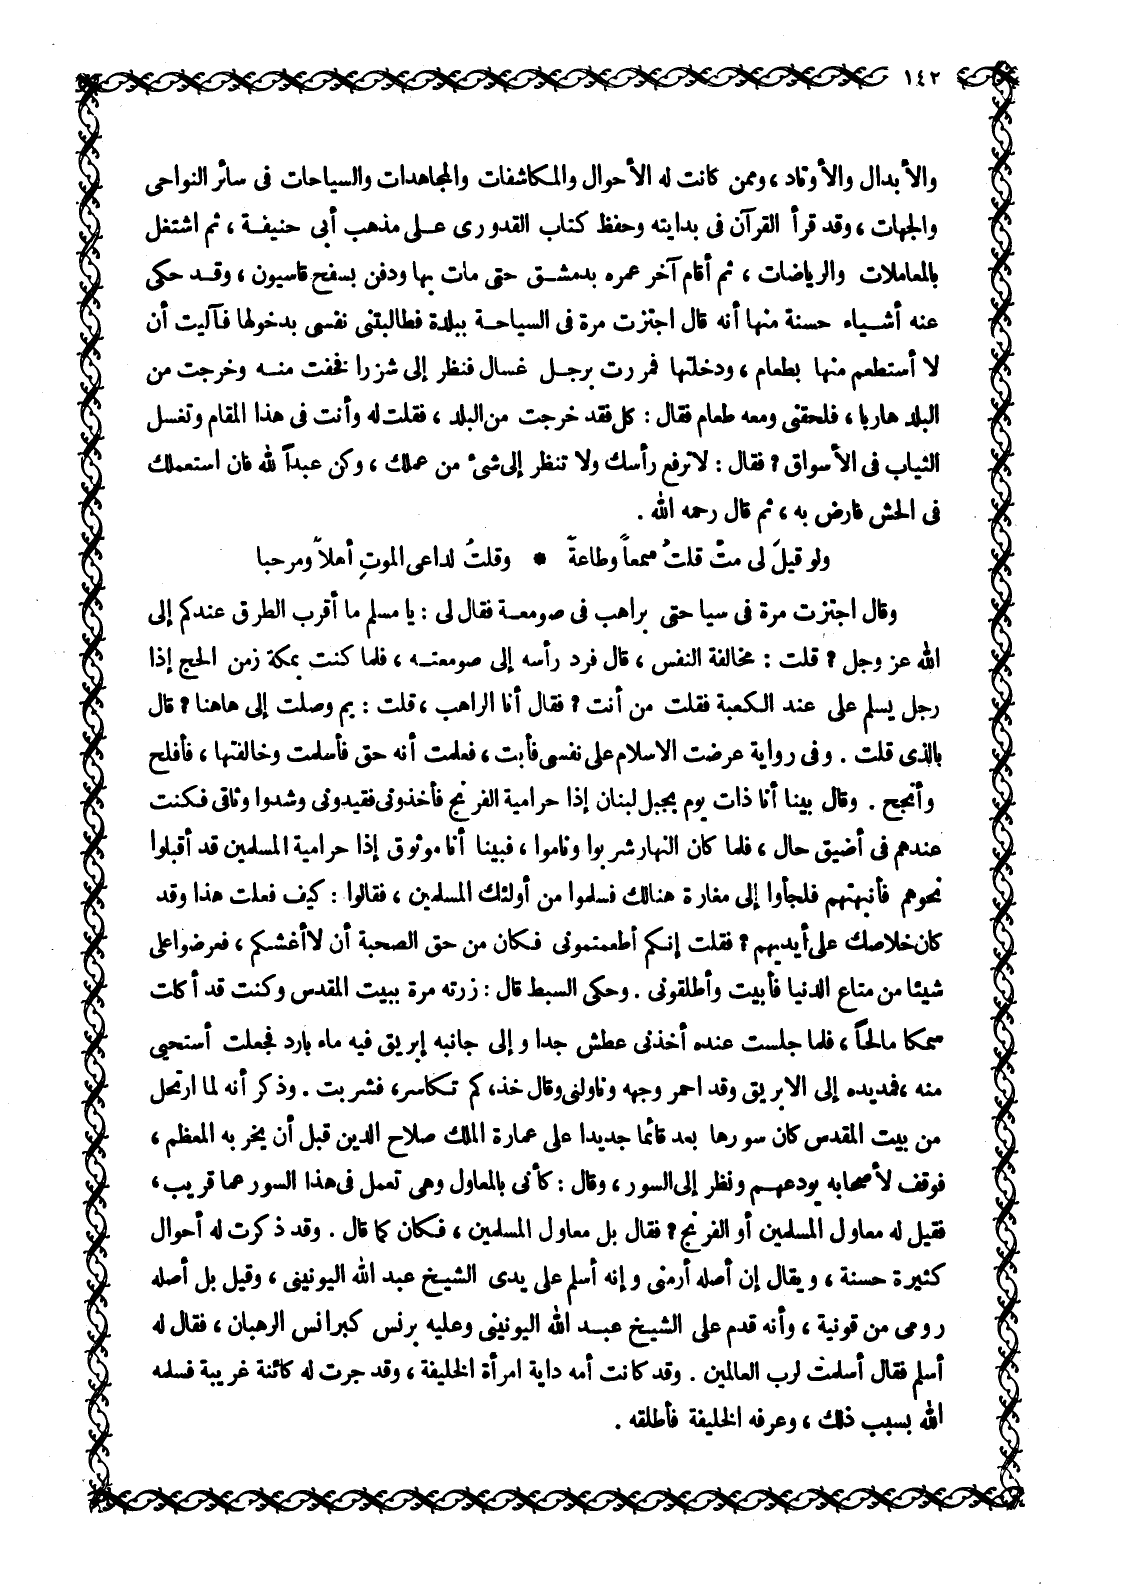 ١٤٢
والأبدال والأوتاد ، وممن كانت له الأحوال والمكاشفات والمجاهدات والسياحات فى سائر النواحى
والجهات ، وقد قرأ القرآن فى بدايته وحفظ كتاب القدورى على مذهب أبى حنيفة ، ثم اشتغل
بالمعاملات والرياضات ، ثم أقام آخر عمره بدمشق حتى مات بها ودفن بسفح قاسيون ، وقد حكى
عنه أشياء حسنة منها أنه قال اجتزت مرة فى السياحة ببلدة فطالبتنى نفسى بدخولها فآليت أن
لا أستطعم منها بطعام ، ودخلتها فمررت برجل غسال فنظر إلى شزرا فخفت منه وخرجت من
البلد هاربا ، فلحقنى ومعه طعام فقال : كل فقد خرجت من البلد ، فقلت له وأنت فى هذا المقام وتغسل
الثياب فى الأسواق ؟ فقال : لا ترفع رأسك ولا تنظر إلى شئ من عملك ، وكن عبداً لله فان استعملك
فى الحش فارض به ، ثم قال رحمه الله .
ولو قيلَ لى متْ قلتُ سمعاً وطاعةً * وقلتُ لداعى الموتِ أهلاً ومرحبا
وقال اجتزت مرة فى سياحتى براهب فى صومعة فقال لى : يا مسلم ما أقرب الطرق عندكم إلى
الله عز وجل ؟ قلت : مخالفة النفس ، قال فرد رأسه إلى صومعته ، فلما كنت بمكة زمن الحج إذا
رجل يسلم على عند الكعبة فقلت من أنت ؟ فقال أنا الراهب ، قلت : بم وصلت إلى هاهنا ؟ قال
بالذى قلت . وفى رواية عرضت الاسلام على نفسى فأبت ، فعلمت أنه حق فأسلمت وخالفتها ، فأفلح
وأنجح . وقال بينا أنا ذات يوم بجبل لبنان إذا حرامية الفرنج فأخذونى فقيدونى وشدوا وثاقى فكنت
عندهم فى أضيق حال ، فلما كان النهار شربوا وناموا ، فبينا أنا موثوق إذا حرامية المسلمين قد أقبلوا
نحوهم فأنبهتهم فلجأوا إلى مغارة هنالك فسلموا من أولئك المسلمين ، فقالوا : كيف فعلت هذا وقد
كان خلاصك على أيديهم ؟ فقلت إنكم أطعمتمونى فكان من حق الصحبة أن لا أغشكم ، فعرضوا على
شيئا من متاع الدنيا فأبيت وأطلقونى . وحكى السبط قال : زرته مرة ببيت المقدس وكنت قد أكلت
سمكا مالحاً ، فلما جلست عنده أخذنى عطش جدا وإلى جانبه إبريق فيه ماء بارد فجعلت أستحيى
منه ، فمد يده إلى الابريق وقد احمر وجهه وناولنى وقال خذ، كم تكاسر، فشربت . وذكر أنه لما ارتحل
من بيت المقدس كان سورها بعد قائما جديدا على عمارة الملك صلاح الدين قبل أن يخربه المعظم ،
فوقف لأصحابه يودعهم ونظر إلى السور ، وقال : كأنى بالمعاول وهى تعمل فى هذا السور عما قريب ،
فقيل له معاول المسلمين أو الفرنج ؟ فقال بل معاول المسلمين ، فكان كما قال . وقد ذكرت له أحوال
كثيرة حسنة ، ويقال إن أصله أرمنى وإنه أسلم على يدى الشيخ عبد الله اليونينى ، وقيل بل أصله
رومى من قونية ، وأنه قدم على الشيخ عبد الله اليونينى وعليه برنس كبرانس الرهبان ، فقال له
أسلم فقال أسلمت لرب العالمين . وقد كانت أمه داية امرأة الخليفة ، وقد جرت له كائنة غريبة فسلمه
الله بسبب ذلك ، وعرفه الخليفة فأطلقه .